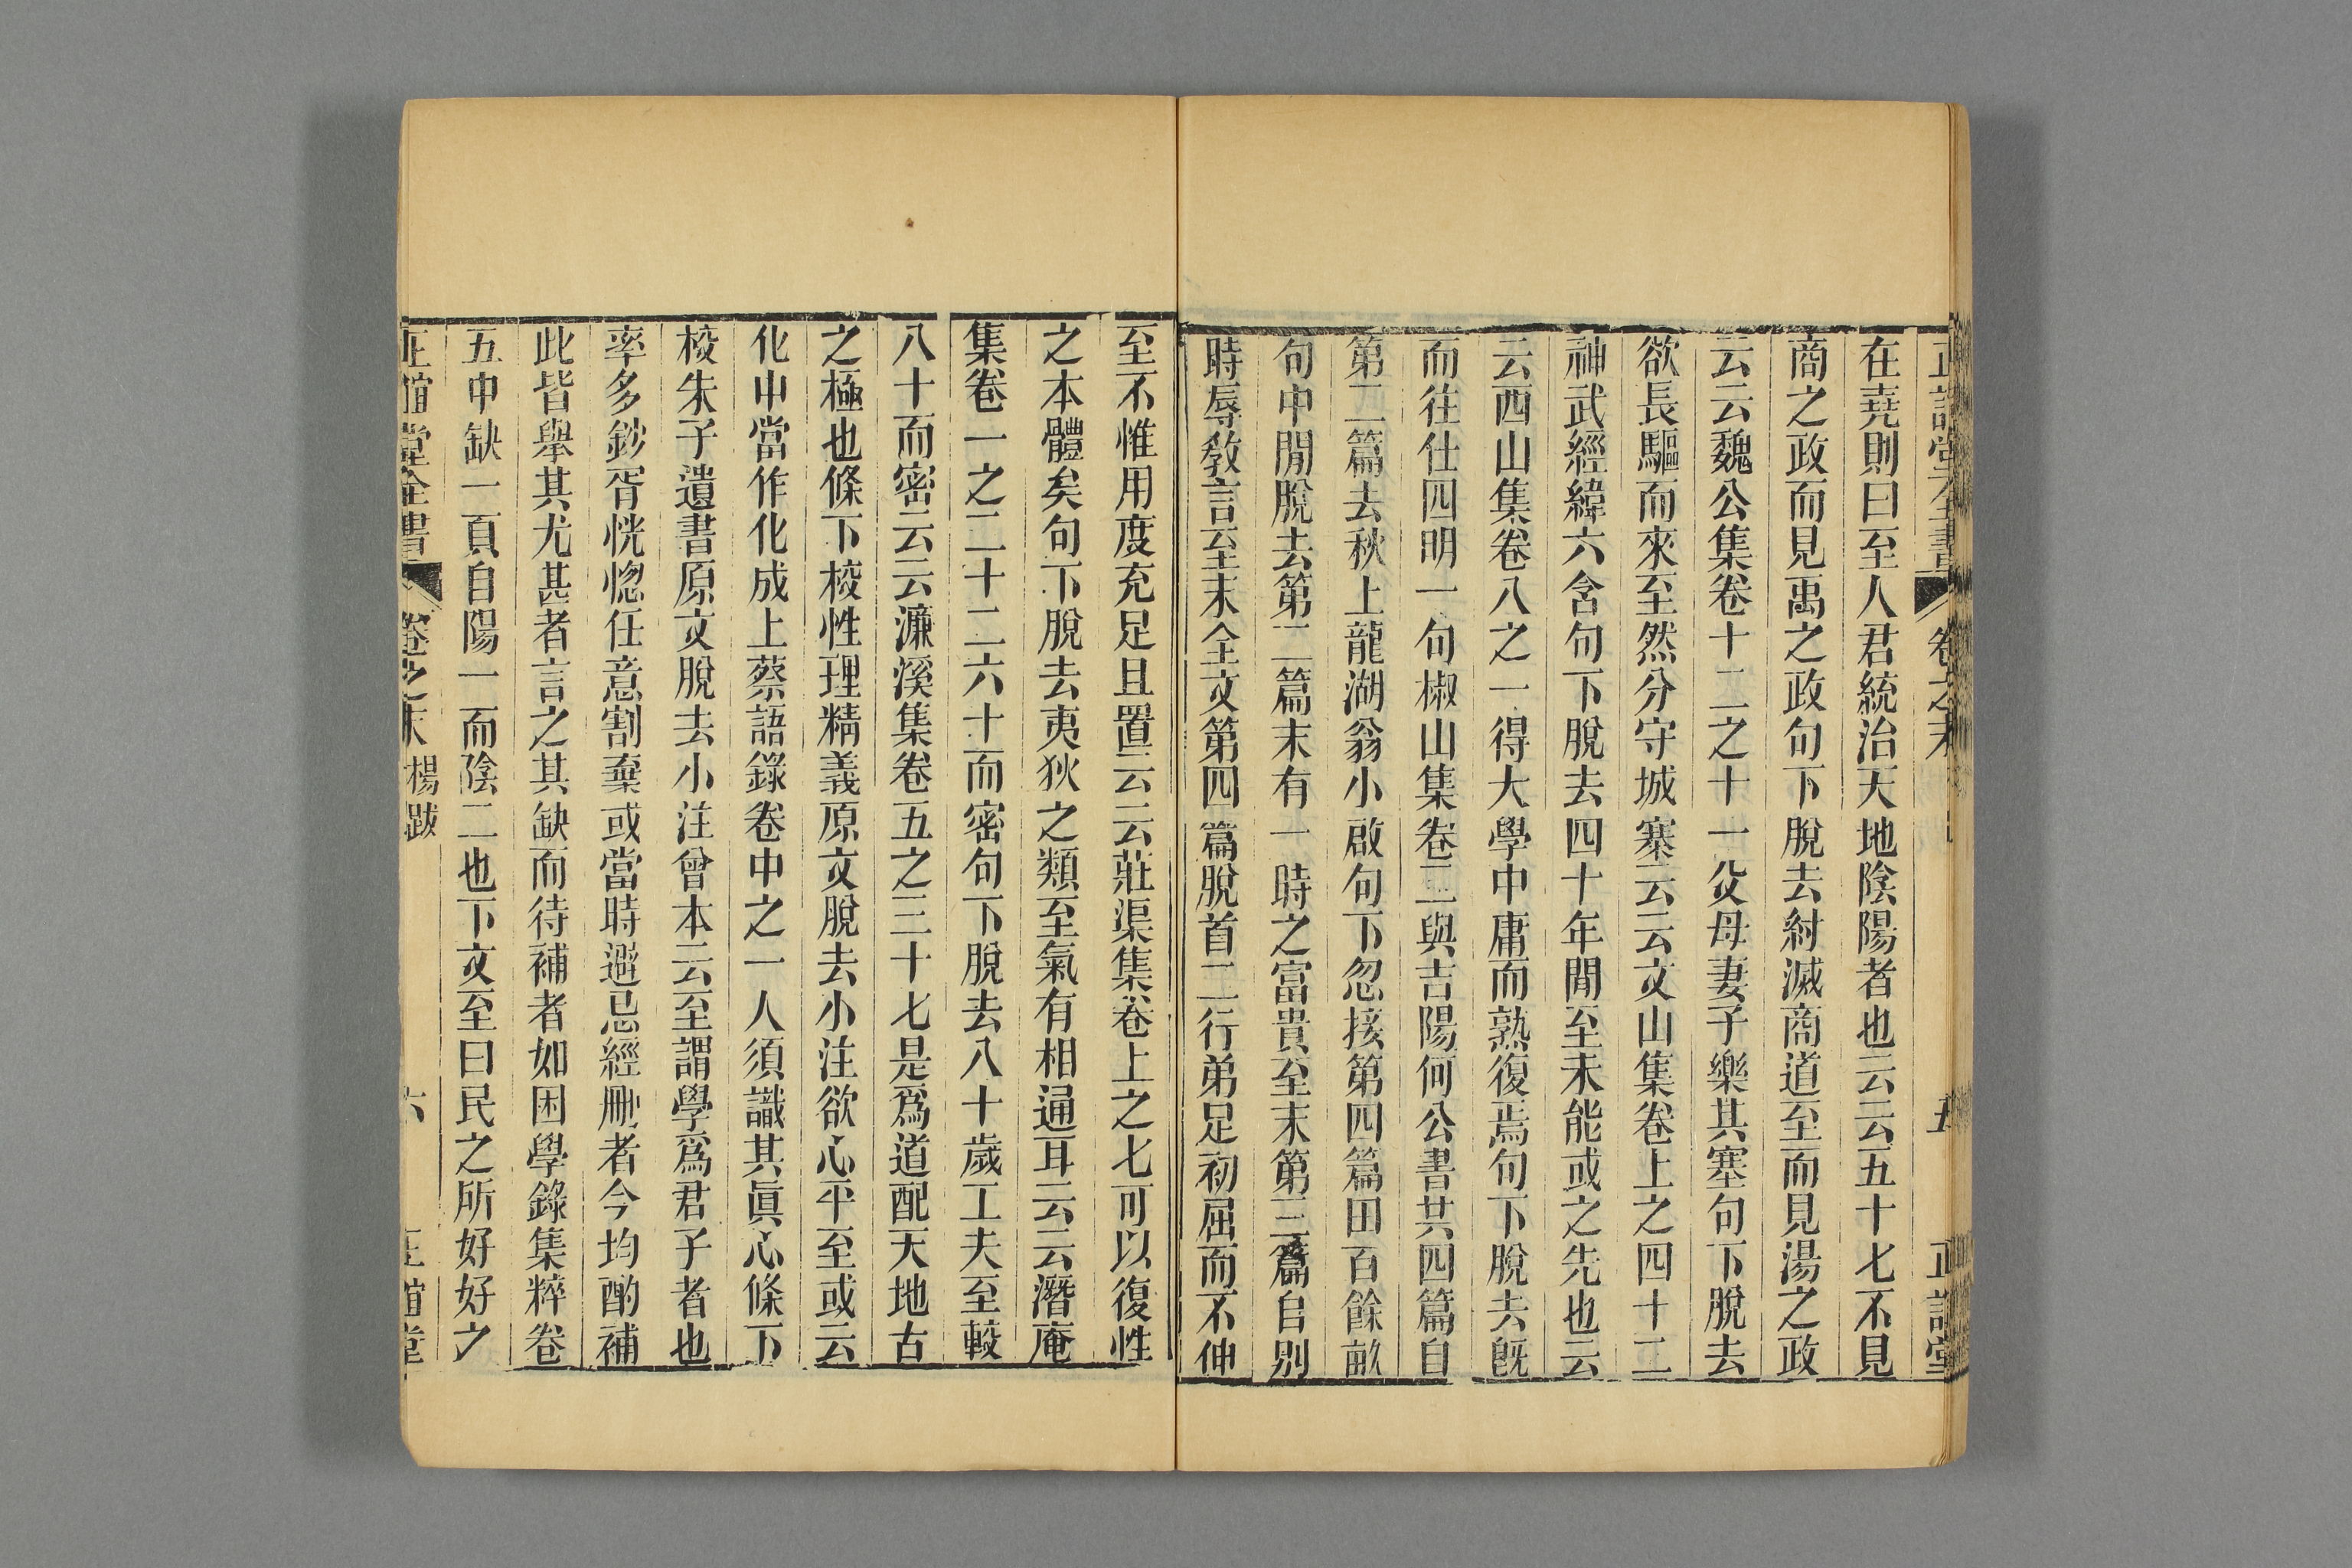 正誼堂全書 卷之末 五 正誼堂
在堯則曰至人君統治天地陰陽者也云云五十七不見
商之政而見禹之政句下脫去紂滅商道至而見湯之政
云云魏公集卷十二之十一父母妻子樂其塞句下脫去
欲長驅而來至然分守城寨云云文山集卷上之四十二
神武經緯六含句下脫去四十年閒至未能或之先也云
云西山集卷八之一得大學中庸而熟復焉句下脫去旣
而往仕四明一句椒山集卷二與吉陽何公書共四篇自
第二篇去秋上龍湖翁小啟句下忽接第四篇田百餘畝
句中閒脫去第二篇末有一時之富貴至末第三篇自別
時辱敎言云至末全文第四篇脫首二行弟足初屈而不伸
至不惟用度充足且置云云莊渠集卷上之七可以復性
之本體矣句下脫去夷狄之類至氣有相通耳云云潛庵
集卷一之二十二六十而密句下脫去八十歲工夫至較
八十而密云云濂溪集卷五之三十七是爲道配天地古
之極也條下校性理精義原文脫去小注欲心平至或云
化中當作化成上蔡語錄卷中之一人須識其眞心條下
校朱子遺書原文脫去小注曾本云至謂學爲君子者也
率多鈔胥恍惚任意割棄或當時避忌經刪者今均酌補
此皆舉其尤甚者言之其缺而待補者如困學錄集粹卷
五中缺一頁自陽一而陰二也下文至曰民之所好好之
正誼堂全書 卷之末 楊跋 六 正誼堂